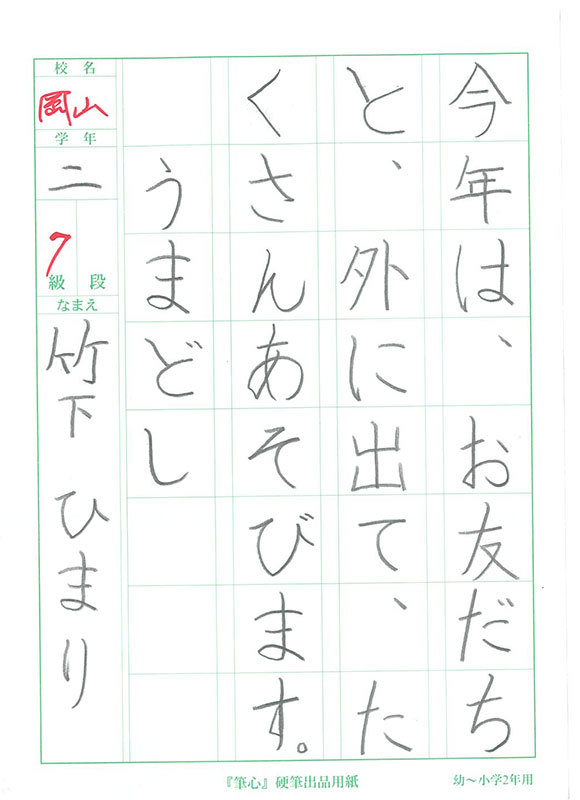 今年は、お友だち
と、外に出て、た
くさんあそびます。
うまどし
校名
岡山
学年
二
7
級
段
なまえ
竹下 ひまり
『筆心』硬筆出品用紙
幼〜小学2年用